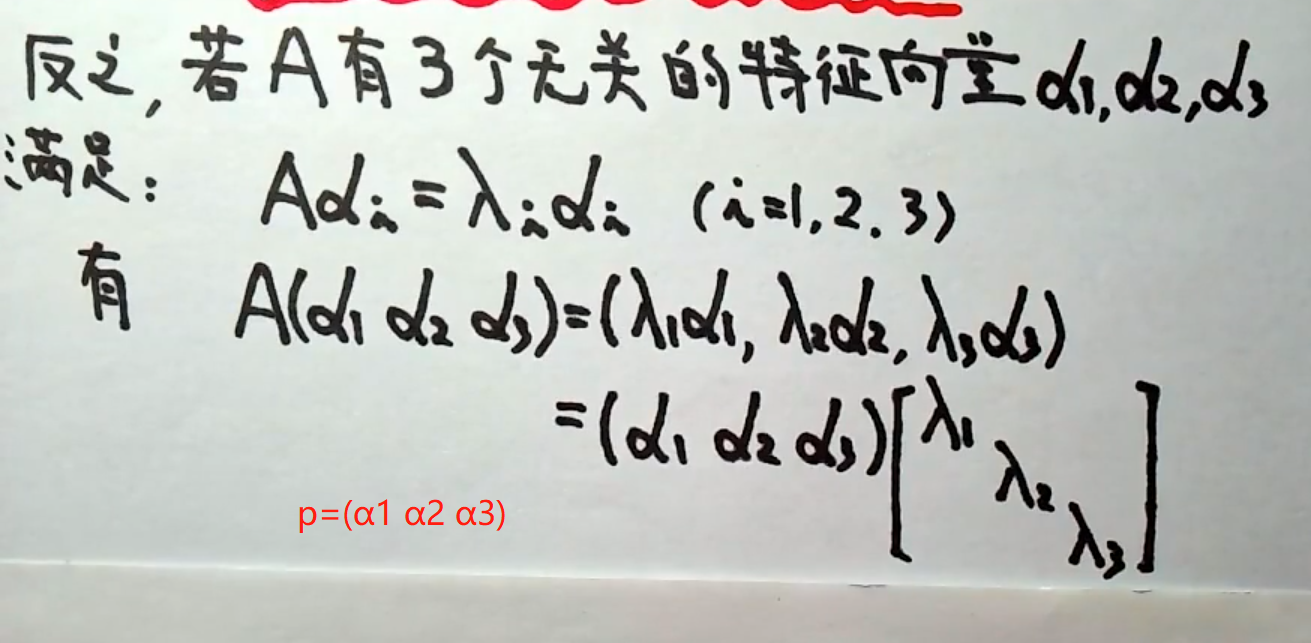 反之,若A有3个无关的特征向量α1,α2,α3
满足: Aαi=λiαi (i=1,2.3)
有 A(α1 α2 α3)=(λ1α1, λ2α2, λ3α3)
=(α1 α2 α3)[λ1
λ2
λ3]
p=(α1 α2 α3)